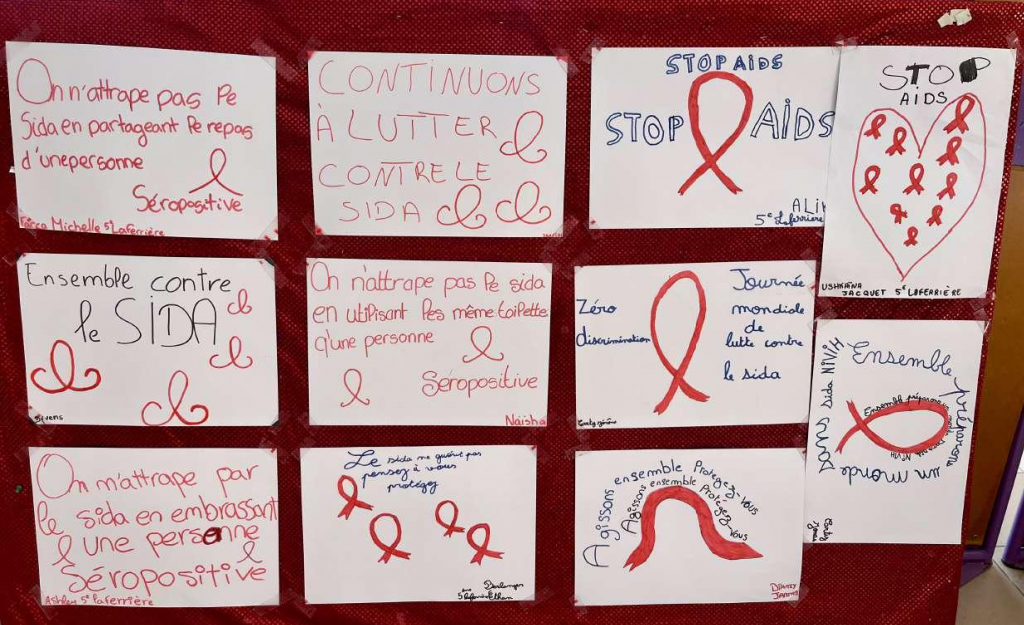 On n'attrape pas le
Sida en partageant le repas
d'une personne
Séropositive
Michelle 5e Laferrière
CONTINUONS
À LUTTER
CONTRE LE
SIDA
STOP AIDS
STOP AIDS
5e Laferriere
STOP
AIDS
USHKAÏNA
JACQUET 5e LAFERRIÈRE
Ensemble contre
le SIDA
On n'attrape pas le sida
en utilisant les même toilette
q'une personne
Séropositive
Naïsha
Zéro
discrimination
Journée
mondiale
de
lutte contre
le sida
Ensemble préparons
un monde
sans sida NI VIH
On n'attrape par
le sida en embrassant
une personne
Séropositive
Ashley 5e laferrière
Le sida ne guérit pas
pensez à vous
protégez
Agissons ensemble Protégez vous
Agissons ensemble Protégez vous